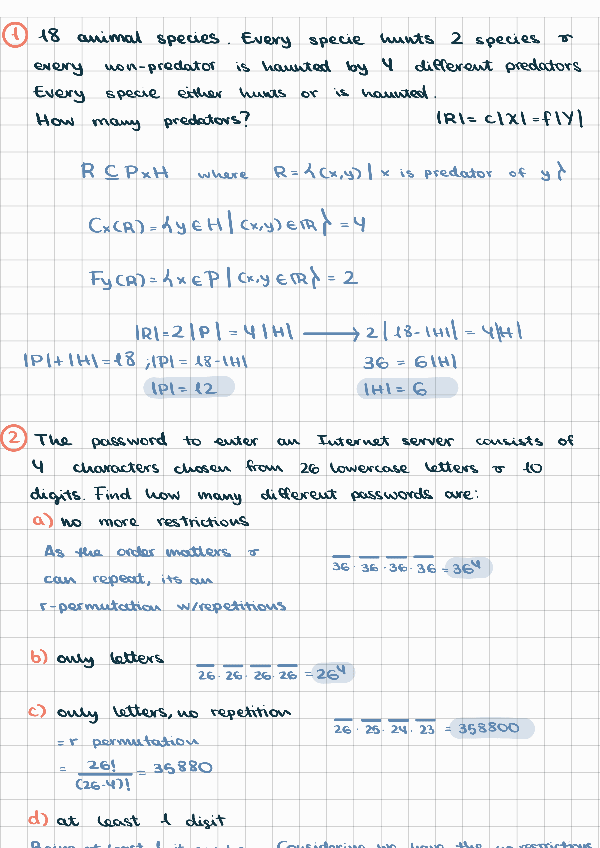 1 18 animal species. Every specie hunts 2 species &
every non-predator is haunted by 4 different predators
Every specie either hunts or is haunted.
How many predators? |R| = c|X| = f|Y|
R ⊆ P×H where R = {(x,y) | x is predator of y}
Cx(R) = {y ∈ H | (x,y) ∈ R} = 4
Fy(R) = {x ∈ P | (x,y ∈ R} = 2
|R| = 2|P| = 4|H| ⟶ 2|18-|H|| = 4|H|
|P|+|H| = 18 ; |P| = 18-|H| 36 = 6|H|
|P| = 12 |H| = 6
2 The password to enter an Internet server consists of
4 characters chosen from 26 lowercase letters & 10
digits. Find how many different passwords are:
a) no more restrictions
As the order matters &
can repeat, its an
r-permutation w/repetitions
36 · 36 · 36 · 36 = 36⁴
b) only letters
26 · 26 · 26 · 26 = 26⁴
c) only letters, no repetition
26 · 25 · 24 · 23 = 358800
= r permutation
= 26!/(26-4)! = 35880
d) at least 1 digit